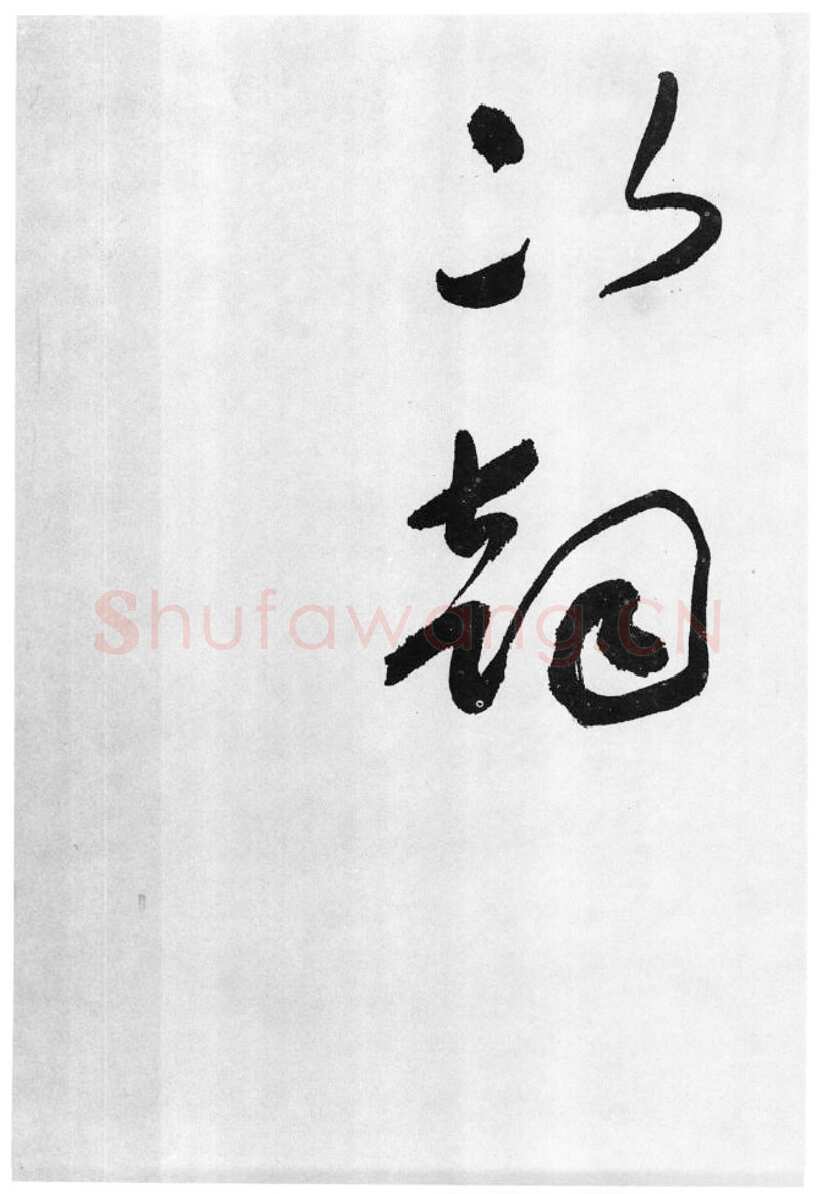 次韵
Shufawang.CN